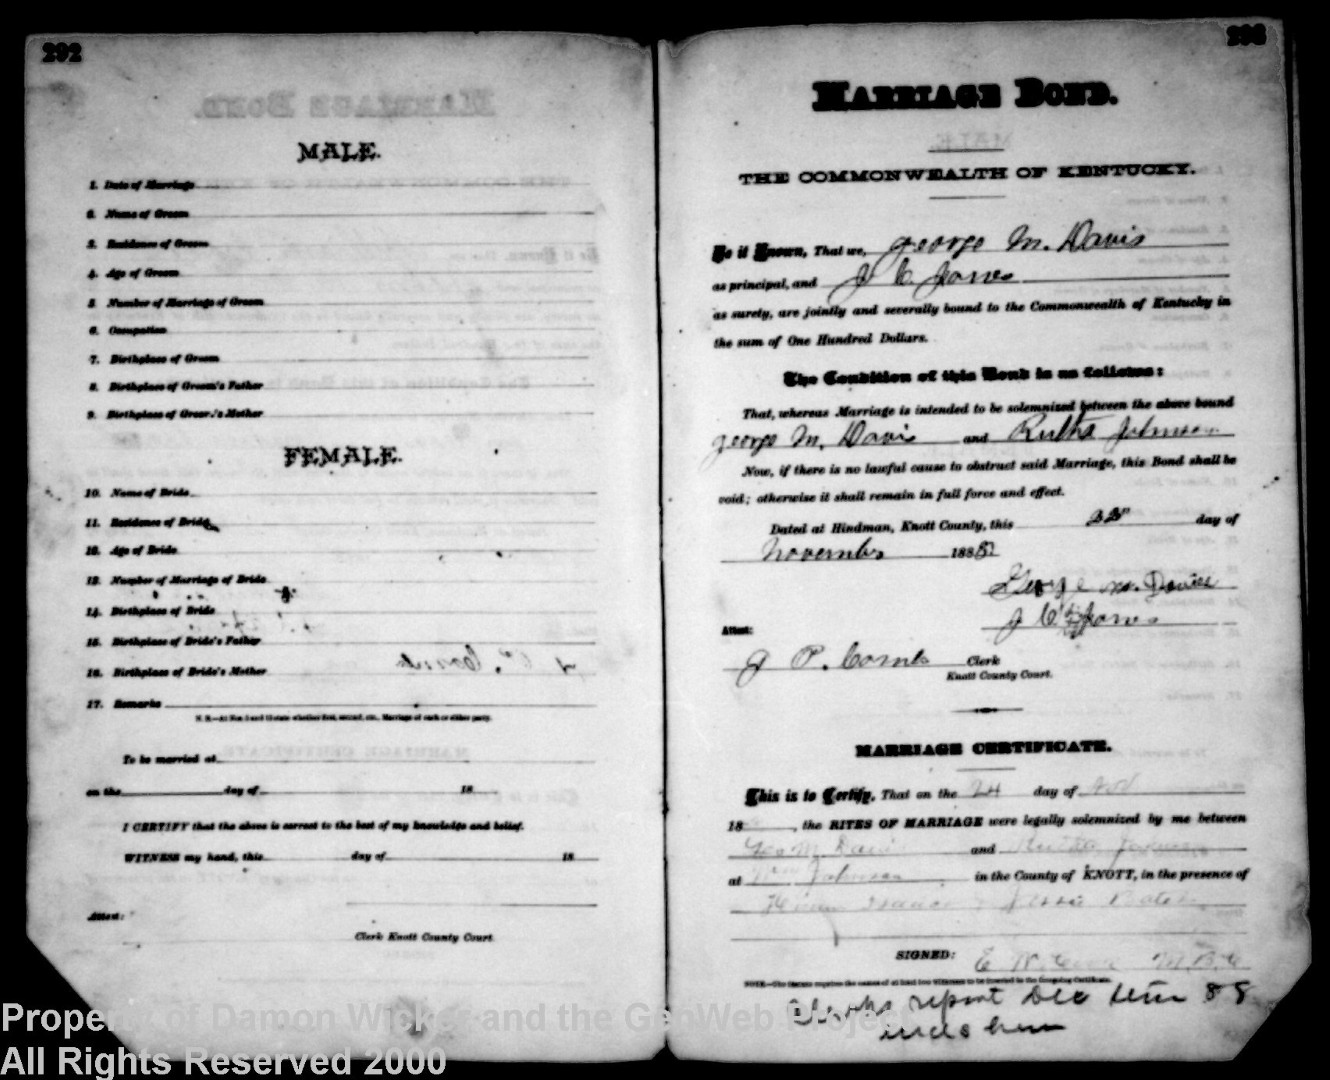 292
MALE.
1. Date of Marriage
2. Name of Groom
3. Residence of Groom
4. Age of Groom
5. Number of Marriage of Groom
6. Occupation
7. Birthplace of Groom
8. Birthplace of Groom's Father
9. Birthplace of Groom's Mother
FEMALE.
10. Name of Bride
11. Residence of Bride
12. Age of Bride
13. Number of Marriage of Bride
14. Birthplace of Bride
15. Birthplace of Bride's Father
16. Birthplace of Bride's Mother
17. Remarks
N. B.—At Nos. 5 and 13 state whether first, second, etc., Marriage of each or either party.
To be married at
on the day of 18
I CERTIFY that the above is correct to the best of my knowledge and belief.
WITNESS my hand, this day of 18
Attest:
Clerk Knott County Court.
293
MARRIAGE BOND.
THE COMMONWEALTH OF KENTUCKY.
Be it Known, That we, George M. Davis
as principal, and J C Jones
as surety, are jointly and severally bound to the Commonwealth of Kentucky in
the sum of One Hundred Dollars.
The Condition of this Bond is as follows:
That, whereas Marriage is intended to be solemnized between the above bound
George M. Davis and Rutha Johnson
Now, if there is no lawful cause to obstruct said Marriage, this Bond shall be
void; otherwise it shall remain in full force and effect.
Dated at Hindman, Knott County, this day of
November 188
George M. Davis
J C Jones
Attest:
J P. Combs Clerk
Knott County Court.
MARRIAGE CERTIFICATE.
This is to Certify, That on the 24 day of Nov
18 , the RITES OF MARRIAGE were legally solemnized by me between
Geo M Davis and Rutha
at Wm Johnson in the County of KNOTT, in the presence of
Isaacs
SIGNED: E
report Dec term 88
Property of Damon Wicker and the GenWeb Project
All Rights Reserved 2000